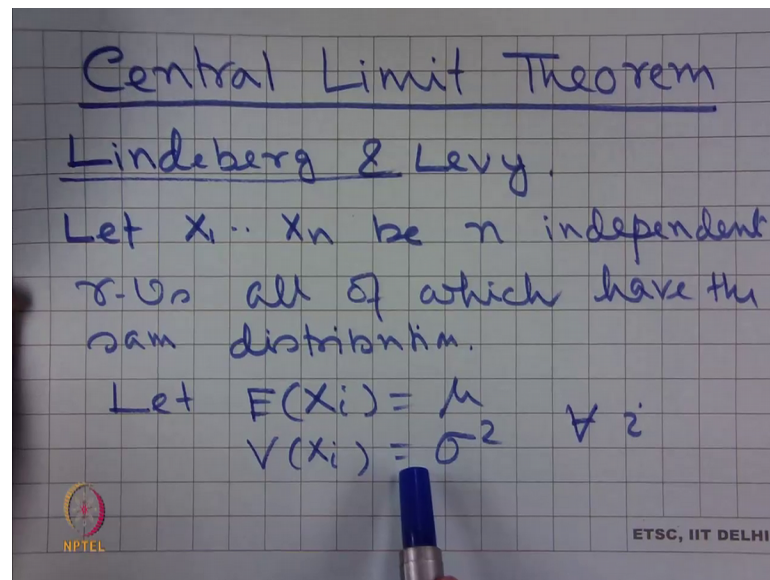 Central Limit Theorem
Lindeberg & Levy.
Let X1 .. Xn be n independent
r.vs all of which have the
sam distribution.
Let E(Xi) = μ
V(Xi) = σ² ∀ i
NPTEL
ETSC, IIT DELHI